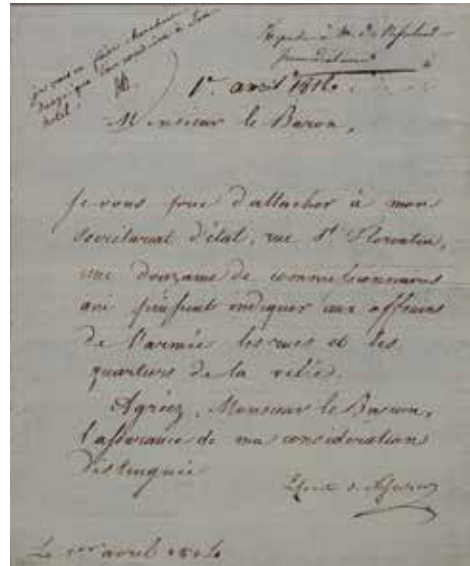 hotel.
1er avril 1814.
Monsieur le Baron,
Je vous prie d'attacher à mon
secrétariat d'état, rue St Florentin,
une douzaine de commissionnaires
qui puissent indiquer aux officiers
de l'armée les rues et les
quartiers de la ville.
Agréez, Monsieur le Baron,
l'assurance de ma considération
distinguée
Le 1er avril 1814